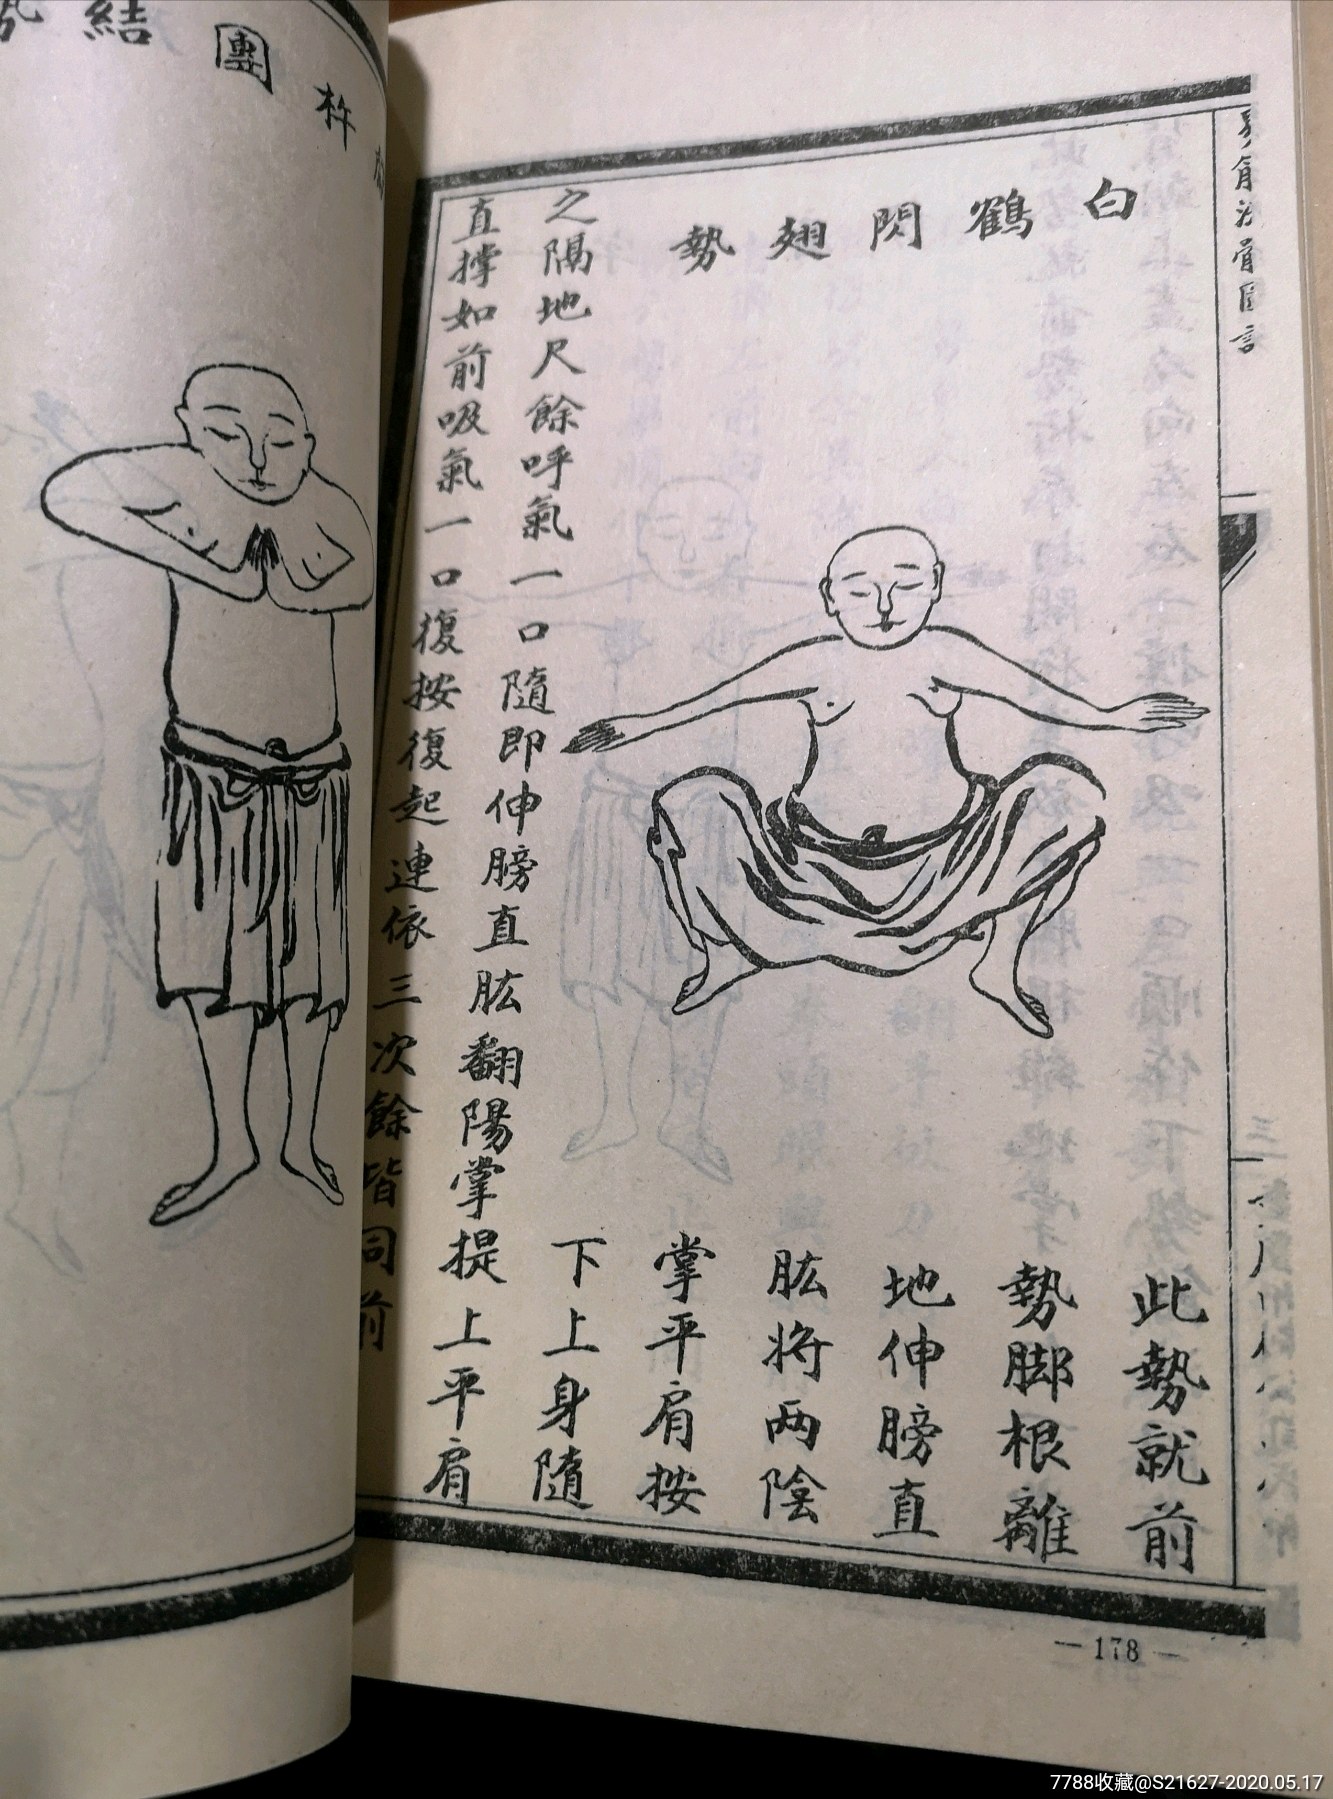 白鶴閃翅勢
此勢就前
勢脚根離
地伸膀直
肱将两陰
掌平肩按
下上身隨
之隔地尺餘呼氣一口隨即伸膀直肱翻陽掌提上平肩
直撑如前吸氣一口復按復起連依三次餘皆同前
杵
團
結
— 178 —
7788收藏@S21627-2020.05.17